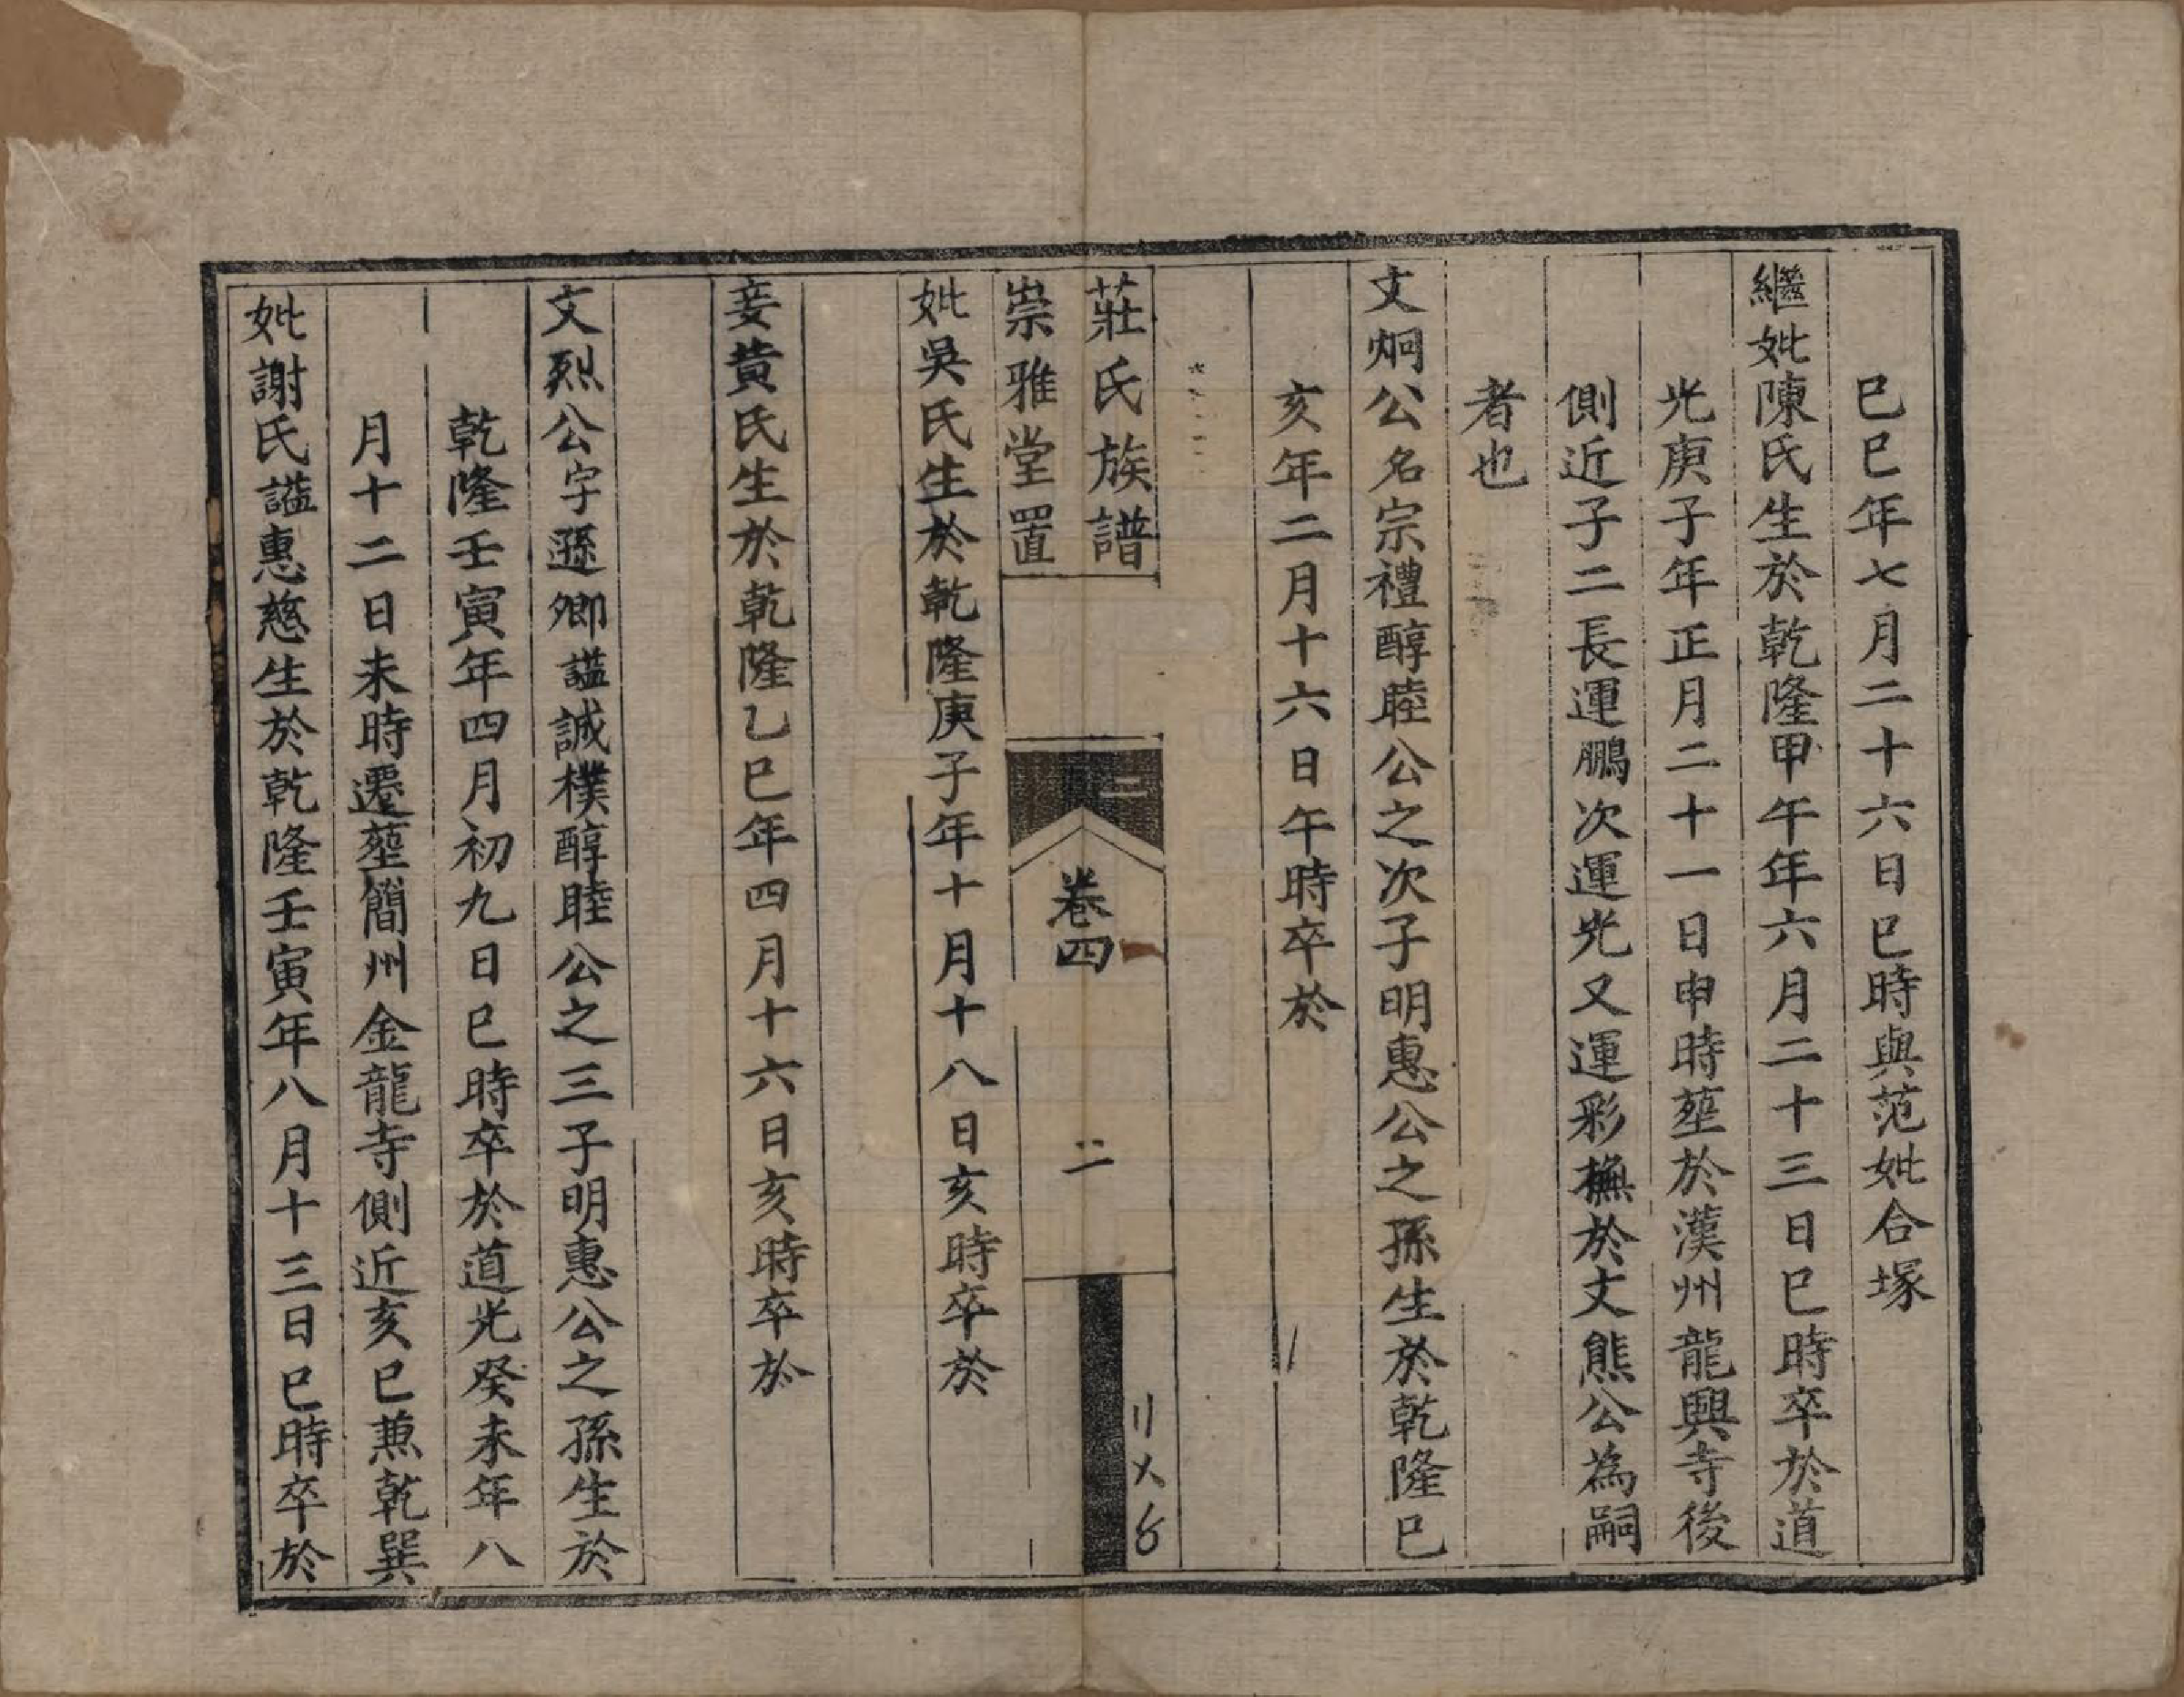 巳巳年七月二十六日巳時與范妣合塚
繼妣陳氏生於乾隆甲午年六月二十三日巳時卒於道
光庚子年正月二十一日申時塟於漢州龍興寺後
側近子二長運鵬次運光又運彩撫於文熊公為嗣
者也
文炯公名宗禮醇睦公之次子明惠公之孫生於乾隆巳
亥年二月十六日午時卒於
莊氏族譜
崇雅堂置
二
卷四
二
妣吳氏生於乾隆庚子年十月十八日亥時卒於
妾黃氏生於乾隆乙巳年四月十六日亥時卒於
文烈公字遜卿謚誠樸醇睦公之三子明惠公之孫生於
乾隆壬寅年四月初九日巳時卒於道光癸未年八
月十二日未時遷塟簡州金龍寺側近亥巳兼乾巽
妣謝氏謚惠慈生於乾隆壬寅年八月十三日巳時卒於